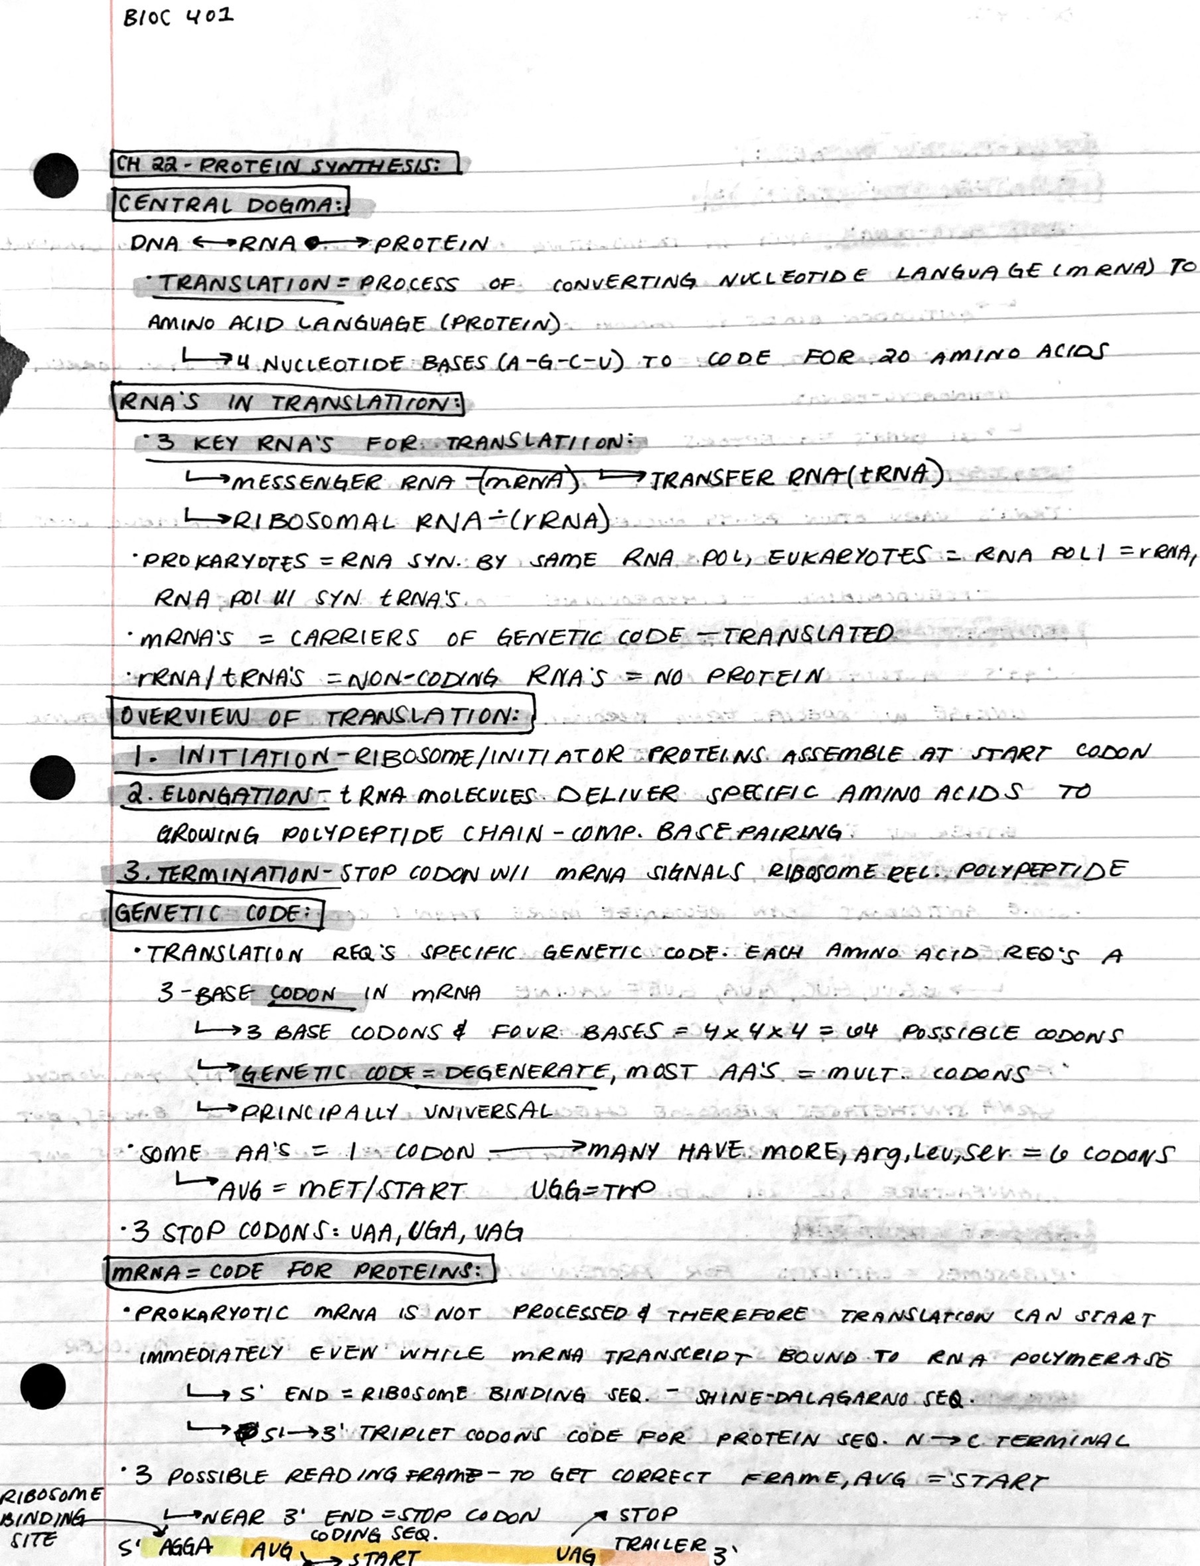 BIOC 401
CH 22 - PROTEIN SYNTHESIS:
CENTRAL DOGMA:
DNA ↔ RNA → PROTEIN
· TRANSLATION = PROCESS OF CONVERTING NUCLEOTIDE LANGUAGE (mRNA) TO
AMINO ACID LANGUAGE (PROTEIN)
↳ 4 NUCLEOTIDE BASES (A-G-C-U) TO CODE FOR 20 AMINO ACIDS
RNA'S IN TRANSLATION:
· 3 KEY RNA'S FOR TRANSLATION:
↳ MESSENGER RNA - (mRNA) ↳ TRANSFER RNA (tRNA)
↳ RIBOSOMAL RNA - (rRNA)
· PROKARYOTES = RNA SYN. BY SAME RNA POL, EUKARYOTES = RNA POL I = rRNA,
RNA POL III SYN tRNA'S.
· mRNA'S = CARRIERS OF GENETIC CODE - TRANSLATED
· rRNA/tRNA'S = NON-CODING RNA'S = NO PROTEIN
OVERVIEW OF TRANSLATION:
1. INITIATION - RIBOSOME/INITIATOR PROTEINS ASSEMBLE AT START CODON
2. ELONGATION - tRNA MOLECULES DELIVER SPECIFIC AMINO ACIDS TO
GROWING POLYPEPTIDE CHAIN - COMP. BASE PAIRING
3. TERMINATION - STOP CODON W/I mRNA SIGNALS RIBOSOME REL. POLYPEPTIDE
GENETIC CODE:
· TRANSLATION REQ'S SPECIFIC GENETIC CODE. EACH AMINO ACID REQ'S A
3-BASE CODON IN mRNA
↳ 3 BASE CODONS & FOUR BASES = 4x4x4 = 64 POSSIBLE CODONS
↳ GENETIC CODE = DEGENERATE, MOST AA'S = MULT. CODONS
↳ PRINCIPALLY UNIVERSAL
· SOME AA'S = 1 CODON → MANY HAVE MORE, Arg, Leu, Ser = 6 CODONS
↳ AUG = MET/START UGG = Trp
· 3 STOP CODONS: UAA, UGA, UAG
mRNA = CODE FOR PROTEINS:
· PROKARYOTIC mRNA IS NOT PROCESSED & THEREFORE TRANSLATION CAN START
IMMEDIATELY EVEN WHILE mRNA TRANSCRIPT BOUND TO RNA POLYMERASE
↳ 5' END = RIBOSOME BINDING SEQ. - SHINE-DALAGARNO SEQ.
↳ 5' → 3' TRIPLET CODONS CODE FOR PROTEIN SEQ. N → C TERMINAL
· 3 POSSIBLE READING FRAME - TO GET CORRECT FRAME, AUG = START
↳ NEAR 3' END = STOP CODON
RIBOSOME
BINDING
SITE
CODING SEQ.
STOP
5' AGGA AUG → START UAG TRAILER 3'